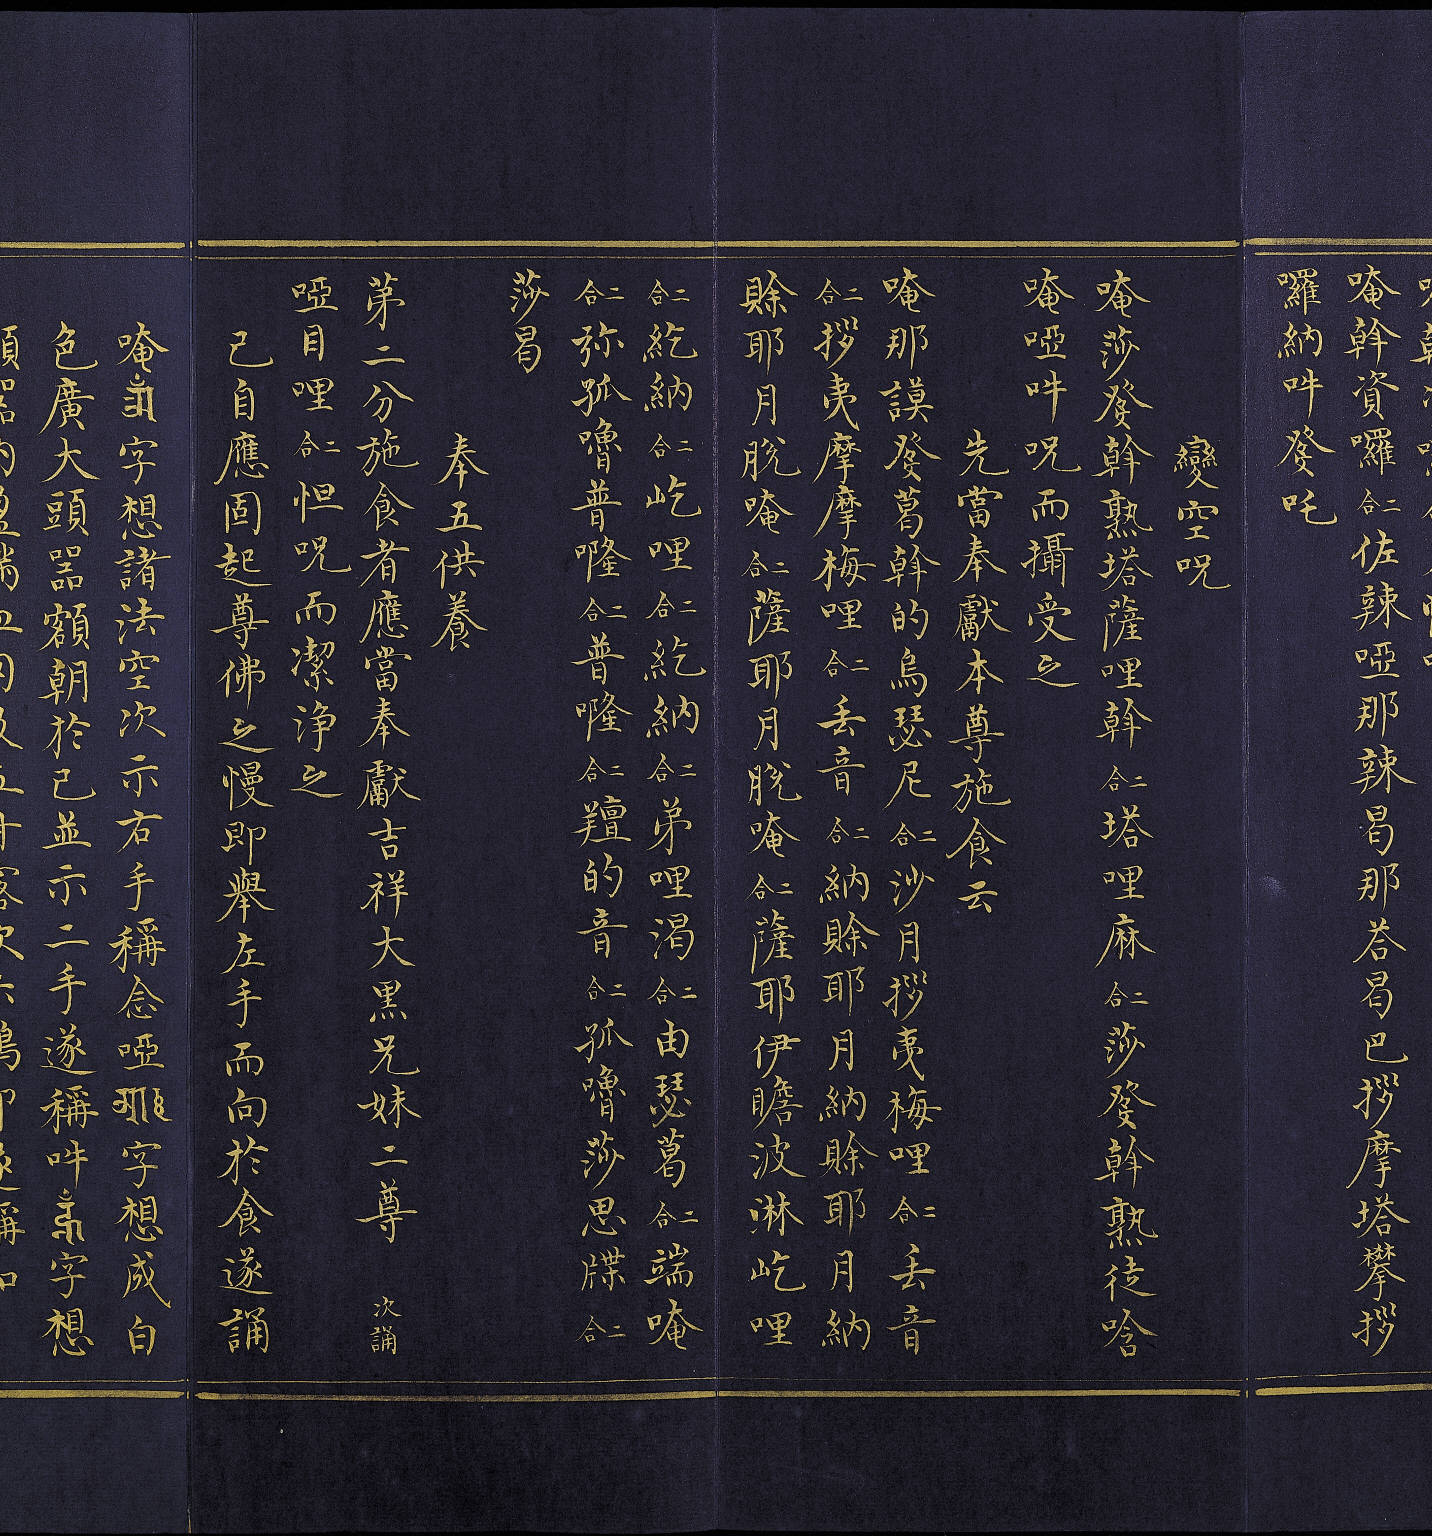 唵斡資囉二合佐辣啞那辣曷那荅曷巴拶摩塔攀拶
囉納吽癹吒
變空呪
唵莎癹斡熟塔薩哩斡二合塔哩麻二合莎癹斡熟徒唅
唵啞吽呪而攝受之
先當奉獻本尊施食云
唵那謨癹葛斡的烏瑟尼二合沙月拶夷梅哩二合丢音
二合拶夷摩摩梅哩二合丢音二合納賖耶月納賖耶月納
賖耶月脫唵二合薩耶月脫唵二合薩耶伊瞻波淋屹哩
二合紇納二合屹哩二合紇納二合弟哩渴二合由瑟葛二合端唵
二合弥孤嚕普㘕二合普㘕二合羶的音二合孤嚕莎思牒二合
莎曷
奉五供養
第二分施食者應當奉獻吉祥大黑兄妹二尊 次誦
啞目哩二合怛呪而潔淨之
己自應固起尊佛之慢即舉左手而向於食遂誦
唵字想諸法空次示右手稱念啞字想成白
色廣大頭器額朝於己並示二手遂稱吽字想